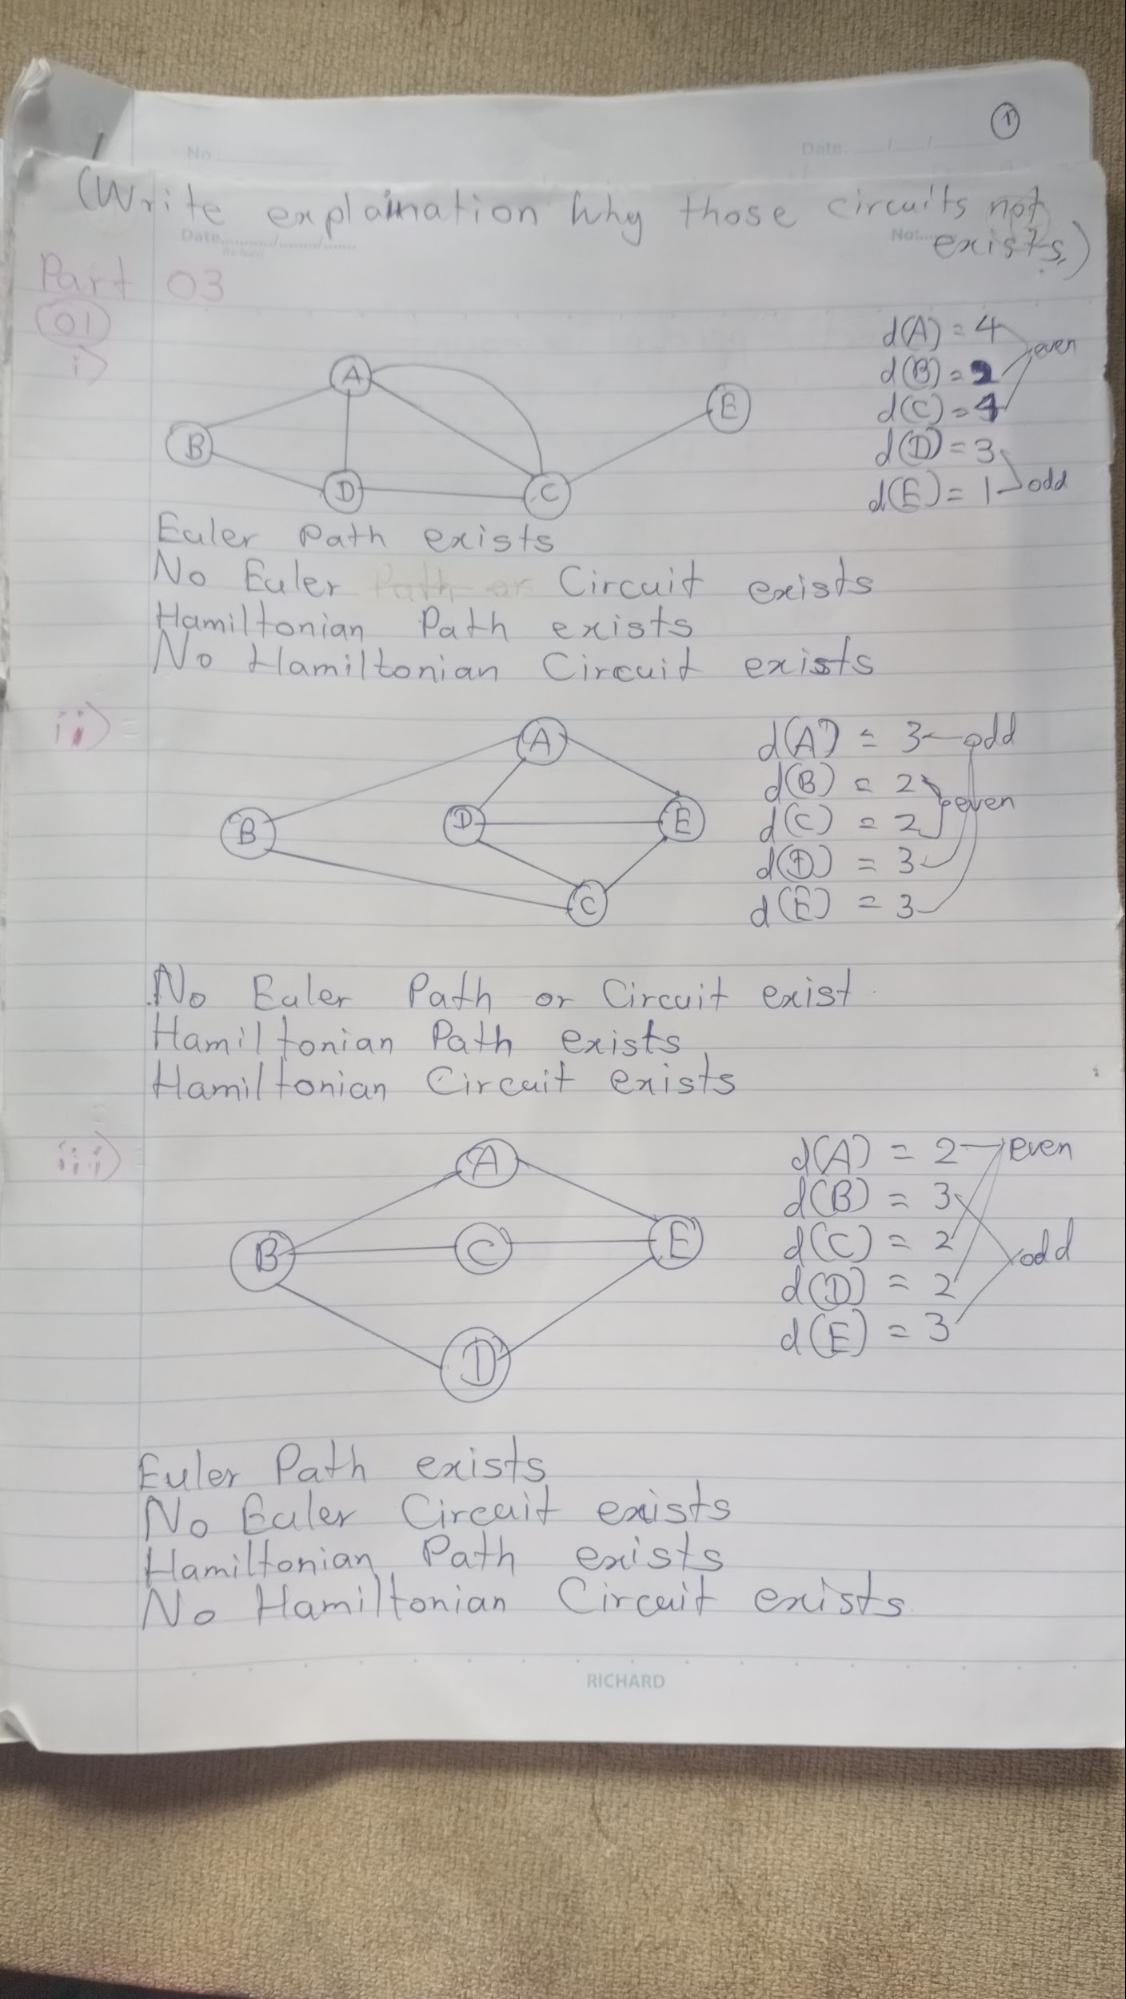 1
No
Date: / /
(Write explaination why those circuits not
Date
No:
exists.)
Part 03
01
i)
A
B
D
C
E
d(A) = 4
even
d(B) = 2
d(C) = 4
d(D) = 3
d(E) = 1
odd
Euler Path exists
No Euler Path or Circuit exists
Hamiltonian Path exists
No Hamiltonian Circuit exists
ii)
A
B
D
E
C
d(A) = 3
odd
d(B) = 2
even
d(C) = 2
d(D) = 3
d(E) = 3
No Euler Path or Circuit exist.
Hamiltonian Path exists
Hamiltonian Circuit exists
iii)
A
B
C
E
D
d(A) = 2
even
d(B) = 3
d(C) = 2
odd
d(D) = 2
d(E) = 3
Euler Path exists
No Euler Circuit exists
Hamiltonian Path exists
No Hamiltonian Circuit exists
RICHARD